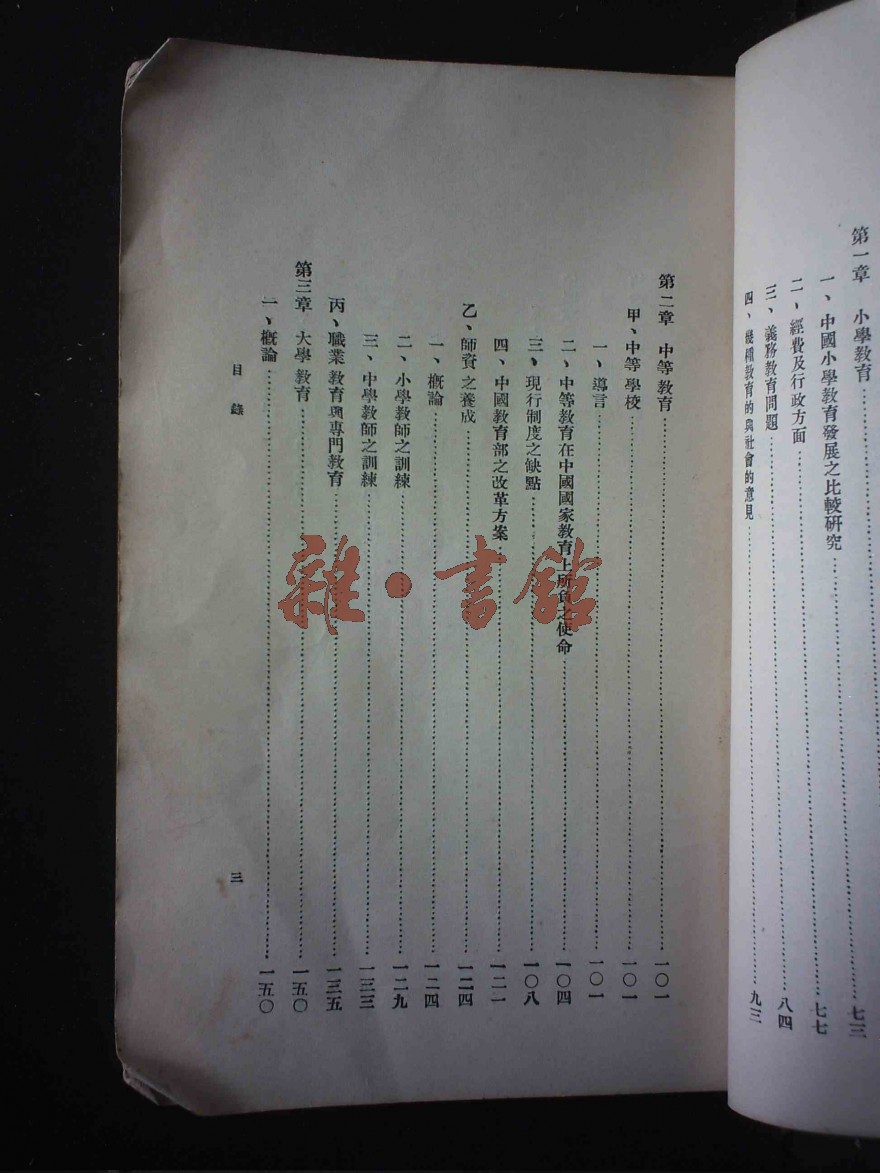 第一章　小學教育……七三
一、中國小學教育發展之比較研究……七七
二、經費及行政方面……八四
三、義務教育問題
四、幾種教育的與社會的意見……九三
第二章　中等教育……一〇一
甲、中等學校……一〇一
一、導言……一〇一
二、中等教育在中國國家教育上所負之使命……一〇四
三、現行制度之缺點……一〇八
四、中國教育部之改革方案……一二一
乙、師資之養成……一二四
一、概論……一二四
二、小學教師之訓練……一二九
三、中學教師之訓練……一三三
丙、職業教育與專門教育……一三五
第三章　大學教育……一五〇
一、概論……一五〇
目錄
三
雜·書館